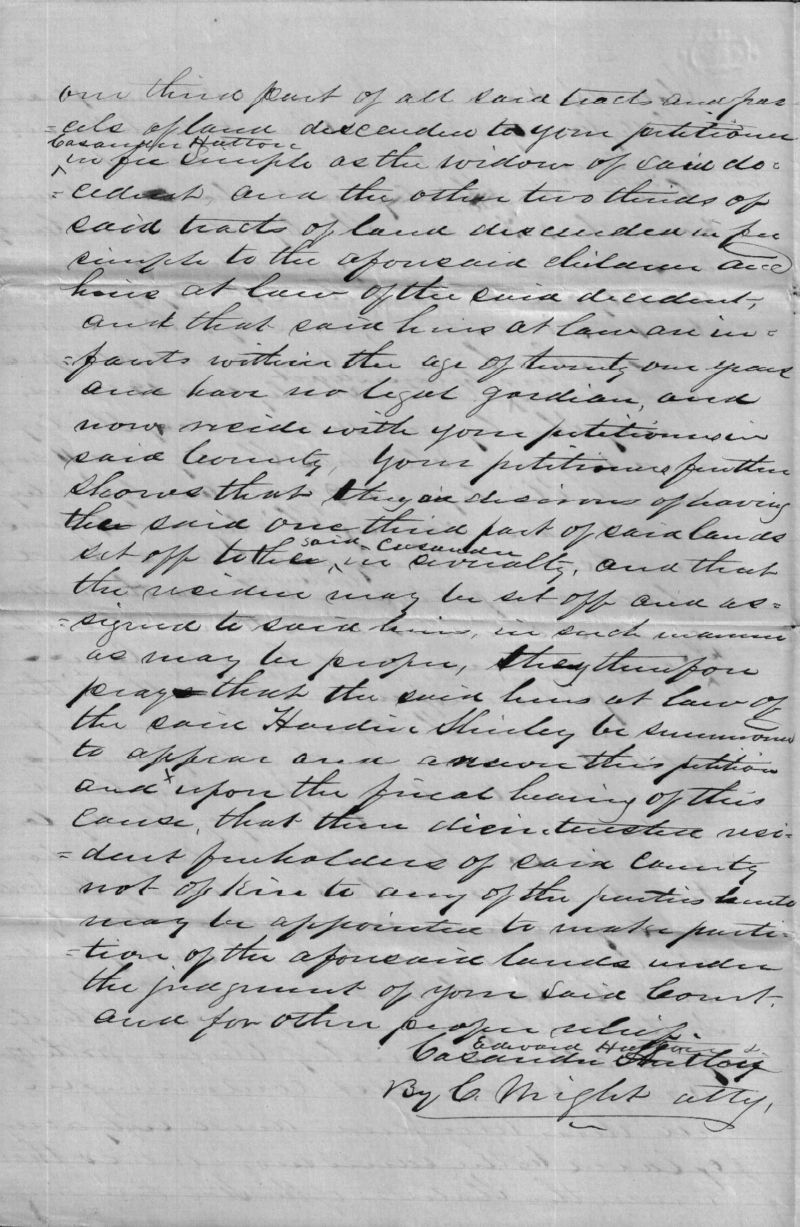 one third part of all said tracts and par
=cels of land descended to your petitioner
Casander Hutton
in fee simple as the widow of said de=
=cedent, and the other two thirds of
said tracts of land descended in fee
simple to the aforesaid children and
heirs at law of the said decedent,
and that said heirs at law are in=
=fants within the age of twenty one years
and have no legal gardian, and
now reside with your petitioners in
said County, Your petitioners further
shows that they are desirous of having
the said one third part of said lands
said Casander
set off to the in severalty, and that
the residue may be set off and as=
=signed to said heirs, in such manner
as may be proper, they therefore
pray that the said heirs at law of
the said Hardin Shirley be summoned
to appear and answer this petition
and x upon the final hearing of this
cause, that three disinterested resi=
=dent freeholders of said County
not of kin to any of the parties hereto
may be appointed to make parti=
=tion of the aforesaid lands under
the judgment of your said Court.
and for other proper relief.
Edward Hutton &
Casander Hutton
By C. Wright atty,